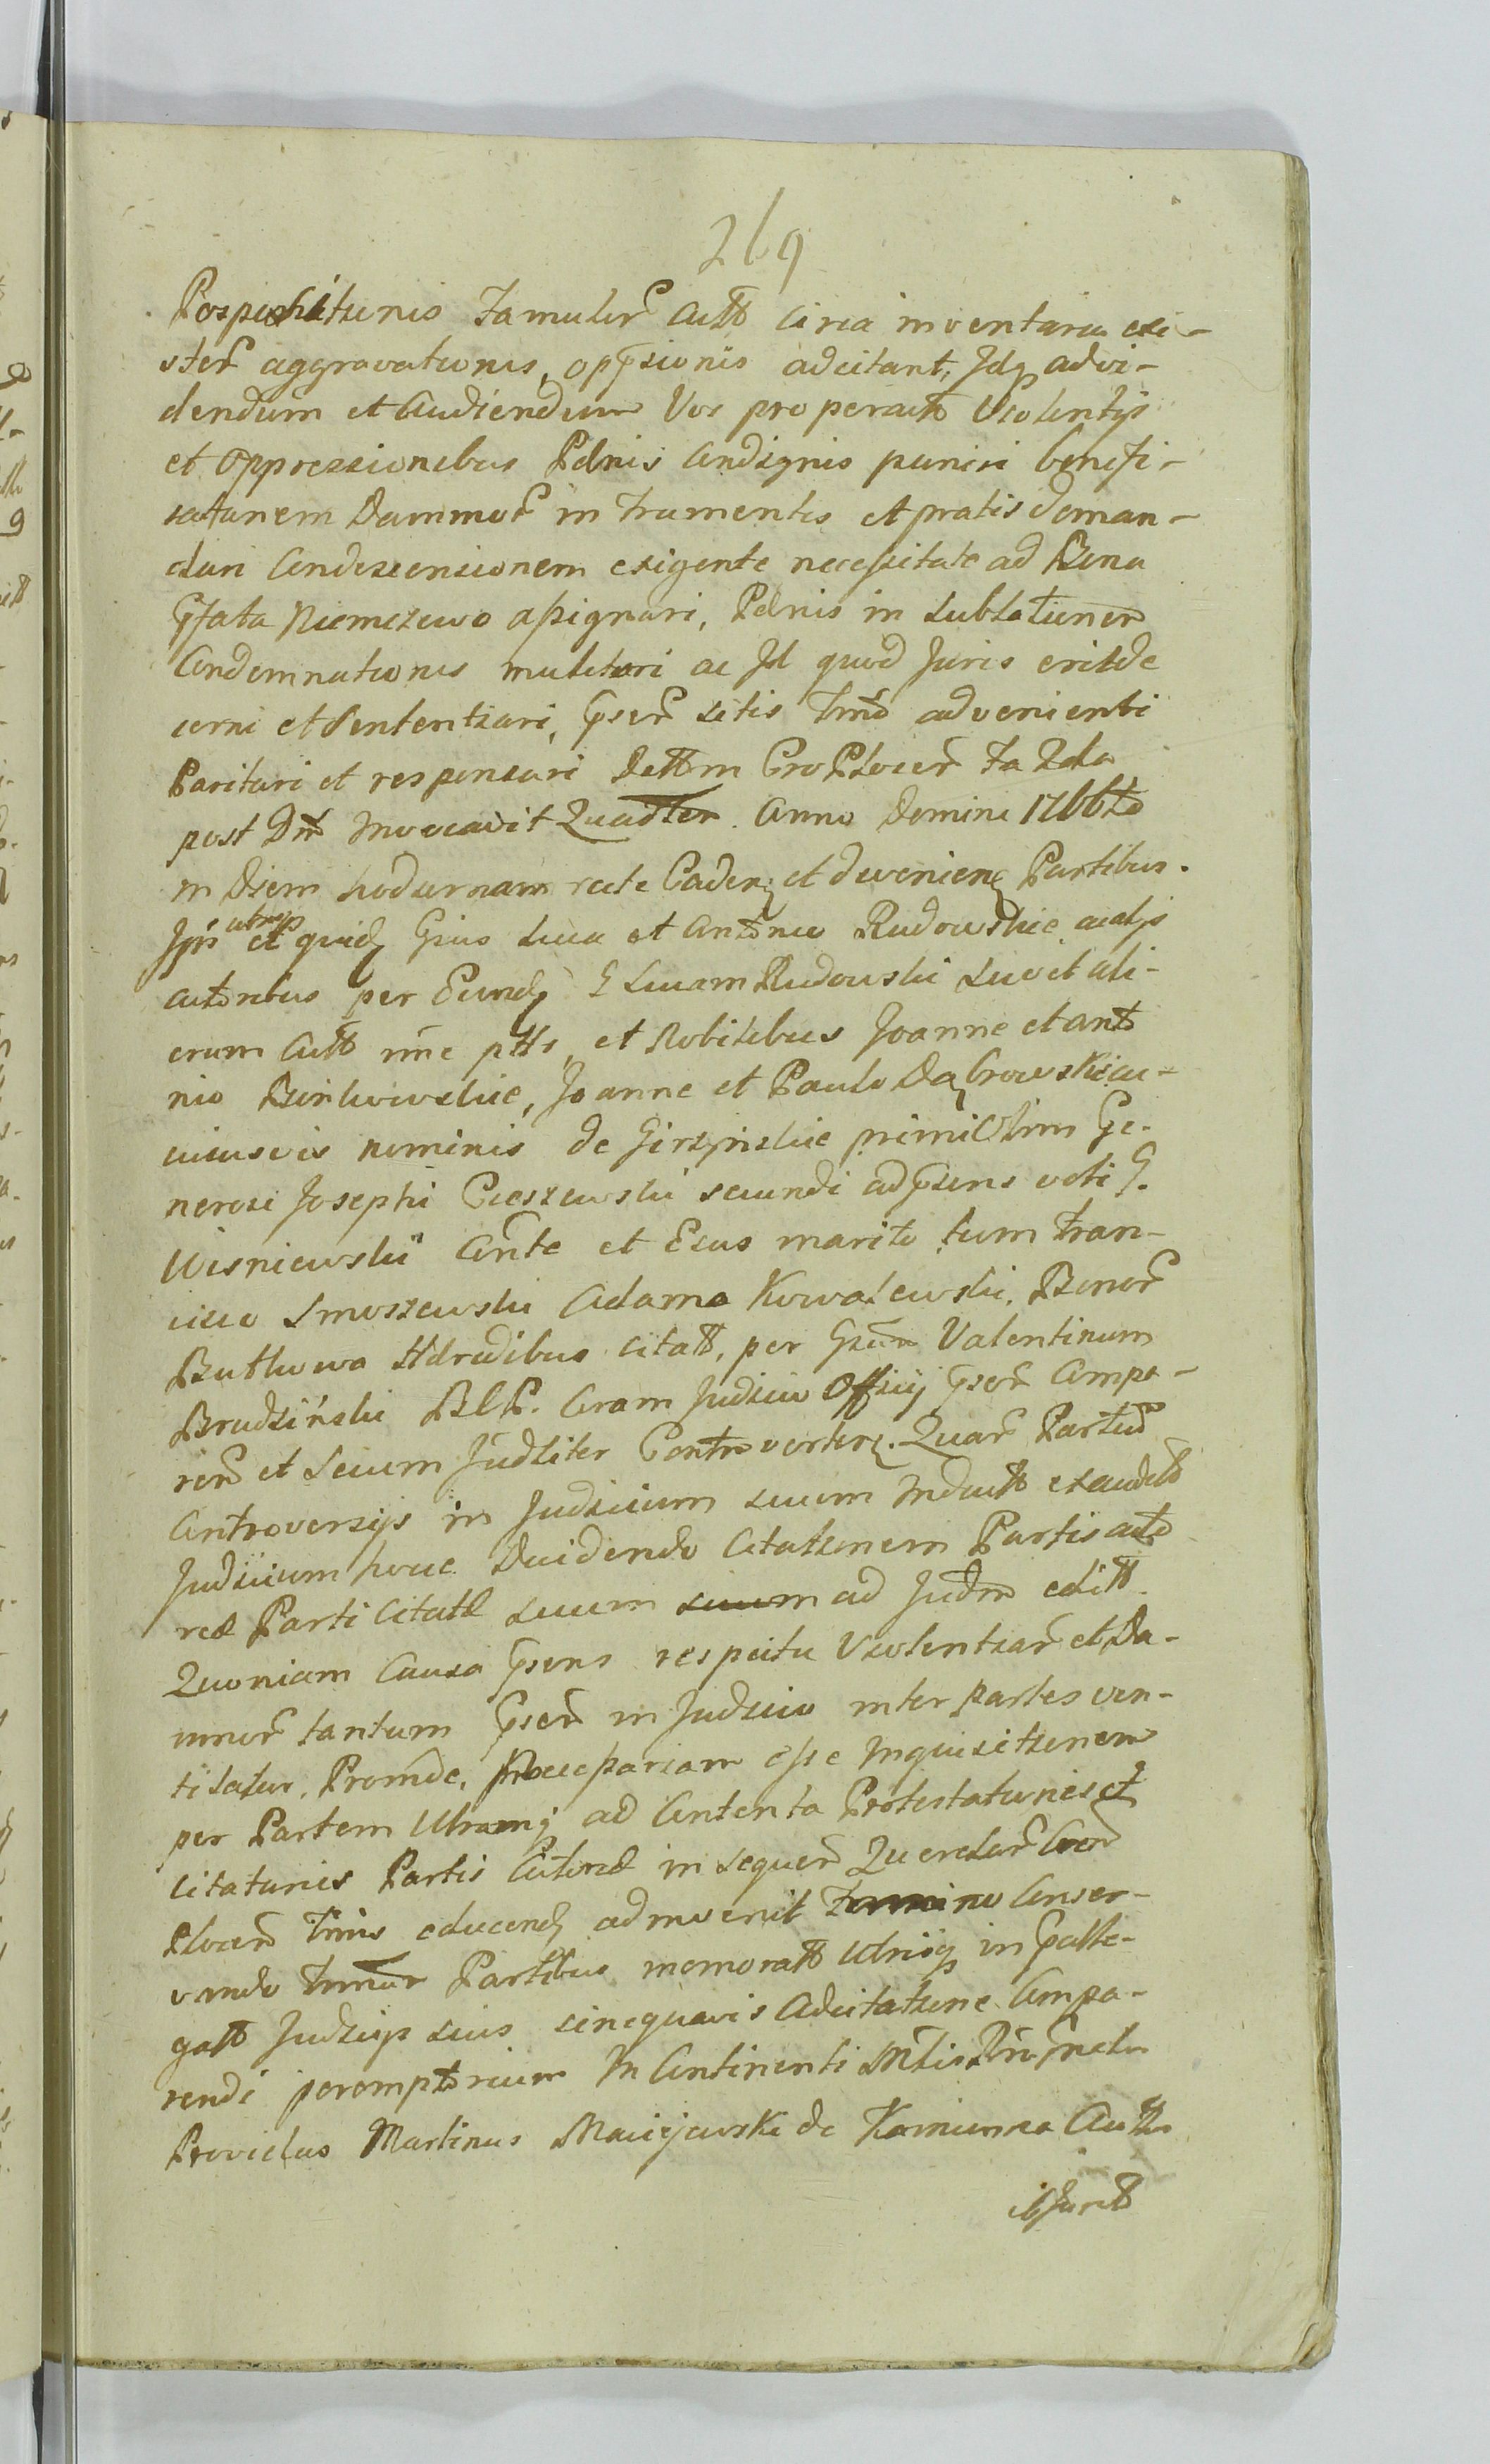 269
Pospischitionis Famulor Actt circa inventaria exi-
sten aggravationis, oppsionis adcitant, Idq ad vi-
dendum et Audiendum Vos pro peractt Violentijs
et oppressionibus Pœnis Condignis puniri benefi-
cationem Damnor in frumentis et pratis deman-
dari Condescensionem exigente necessitate ad Bona
Pfata Niemczewo assignari, Pœnis in sublationem
Condemnationis mulctari ac Id quod Juris erit de
cerni et sententiari, Psen sitis Tmo advenienti
Parituri et responsuri Dattm Cro Plocen Fa 2da
post Dn Invocavit Quadler Anno Domini 1766to
in Diem hodiernam recte Caden et devenien Partibus.
Ipis utrisq et quid Gsus Luca et Antonio Rudowskie actis
actoribus per Eund G Lucam Rudowski suo et ali-
orum Actt nne ptts, et Nobilibus Joanne et Anto
nio Bonkowskie, Joanne et Paulo Dąbrowskie cu-
iusvis nominis de Girzynskie primi Olim Ge-
nerosi Josephi Cieszewski secundi ad Psens voti G.
Wisniewskii Conte et Eius marito tum Fran-
cisco Smoszewski Adamo Kowalewski Bonor
Buthowo Hdredibus citatt, per Gsum Valentinum
Brudziński B.C.P. Coram Judicio Officij Psen Compa-
ren et secum Judliter Controverten. Quar Partium
Controversijs in Judicium suum Inductt exaudittt
Judicium hocce Decidendo Citationem Partis acto
reæ Parti Citatæ suum ad Judm editt.
Quoniam Causa Psens respectu Violentiar et Da-
mnor tantum Psen in Judicio inter partes ven-
tilatur. Proinde, necessariam esse Inquisitionem
per Partem Utramq ad Contenta Protestationis et
Citationis Partis Actoreæ in sequen Querelar Coram
Plocen Tmis educend admvenit Termino Conser-
vando Tmum Partibus memoratt Utrisq in Psatte-
gatt Judicijs suis sine quavis Adcitatione Compa-
rendi peremptorium In Continenti
Providus Martinus Maciejewski de Kamionna Actt